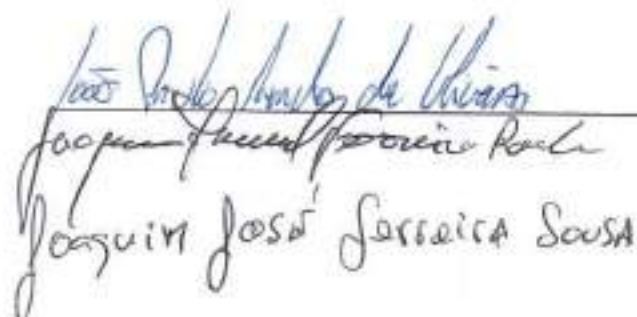 João Paulo de Oliveira
Joaquim Manuel Ferreira Rocha
Joaquim José Ferreira Sousa